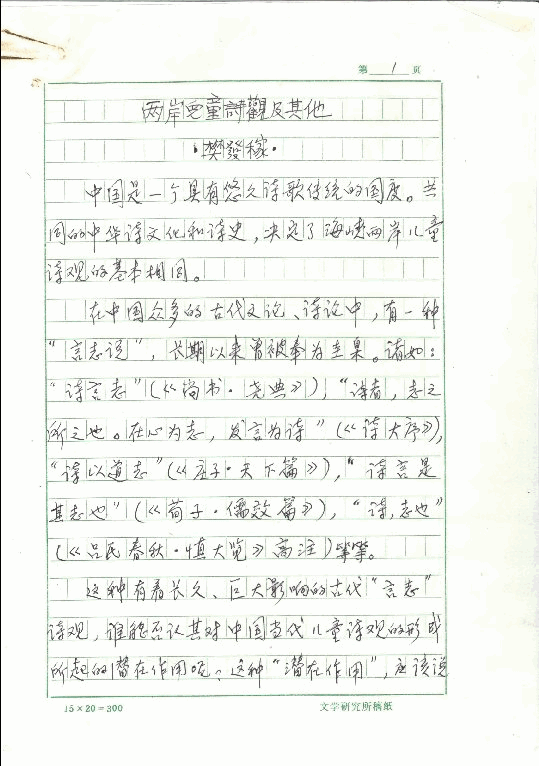 第 1 页
两岸兒童詩觀及其他
·樊發稼·
中国是一个具有悠久诗歌传统的国度。共
同的中华诗文化和诗史，决定了海峡两岸儿童
诗观的基本相同。
在中国众多的古代文论、诗论中，有一种
“言志说”，长期以来曾被奉为圭臬。诸如：
“诗言志”（《尚书·尧典》），“诗者，志之
所之也。在心为志，发言为诗”（《诗大序》），
“诗以道志”（《庄子·天下篇》），“诗言是
其志也”（《荀子·儒效篇》），“诗，志也”
（《吕氏春秋·慎大览》高注）等等。
这种有着长久、巨大影响的古代“言志”
诗观，谁能否认其对中国当代儿童诗观的形成
所起的潜在作用呢？这种“潜在作用”，应该说
15×20=300
文学研究所稿纸